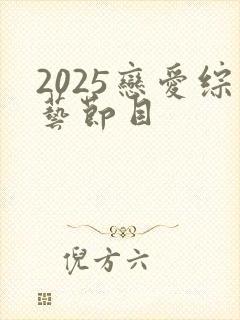 2025戀愛综
藝節目
倪方六